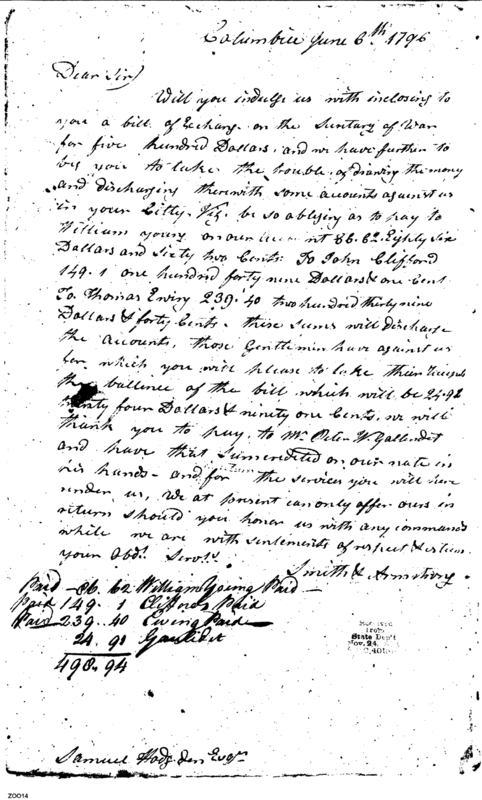 Columbia June 6th 1796
Dear Sir
Will you indulge us with inclosing to
you a bill of Exchange on the Secretary of War
for five hundred Dollars, and we have further to
beg you to take the trouble of drawing the money
and discharging therewith some accounts against us
in your Citty. Viz. be so obligeing as to pay to
William young on our 86.62 Eighty Six
Dollars and Sixty two Cents. To John Clifford
149.1 one hundred forty nine Dollars & one Cent
To Thomas Ewing 239.40 two hundred thirty nine
Dollars & forty Cents. these Sums will discharge
the accounts, those Gentlemen have against us
for which you will please to take their
the ballence of the bill which will be 24.92
twenty four Dollars & ninety one Cents, we will
thank you to pay to Mr. Peter W Gallaudet
and have that Sum credited on our note in
his hands - and for the services you will here
render us, We at present can only offer ours in
return
return should you honor us with any commands
while we are with sentements of respect & esteem
your Obdt. Servts.
Smith & Armstrong.
Paid - 86.62 William Young Paid -
Paid 149.1 Clifford Paid
Paid 239.40 Ewing Paid
24.91 Gaulidet
498.94
Received
from
State Dep't
Nov. 24,
Samuel Hodgden Esqr
ZOO14